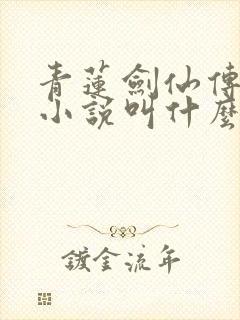 青蓮劍仙傳
小說叫什麼
鍍金流年